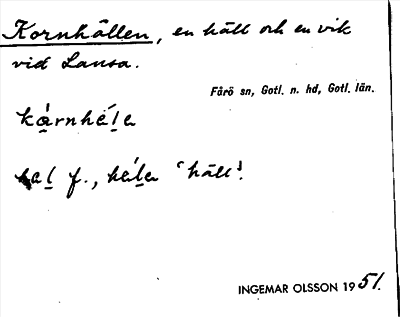 Kornhällen, en häll och en vik
vid Lansa.
Fårö sn, Gotl. n. hd, Gotl. län.
kárnhéla
hal f., héla 'häll'.
INGEMAR OLSSON 1951.